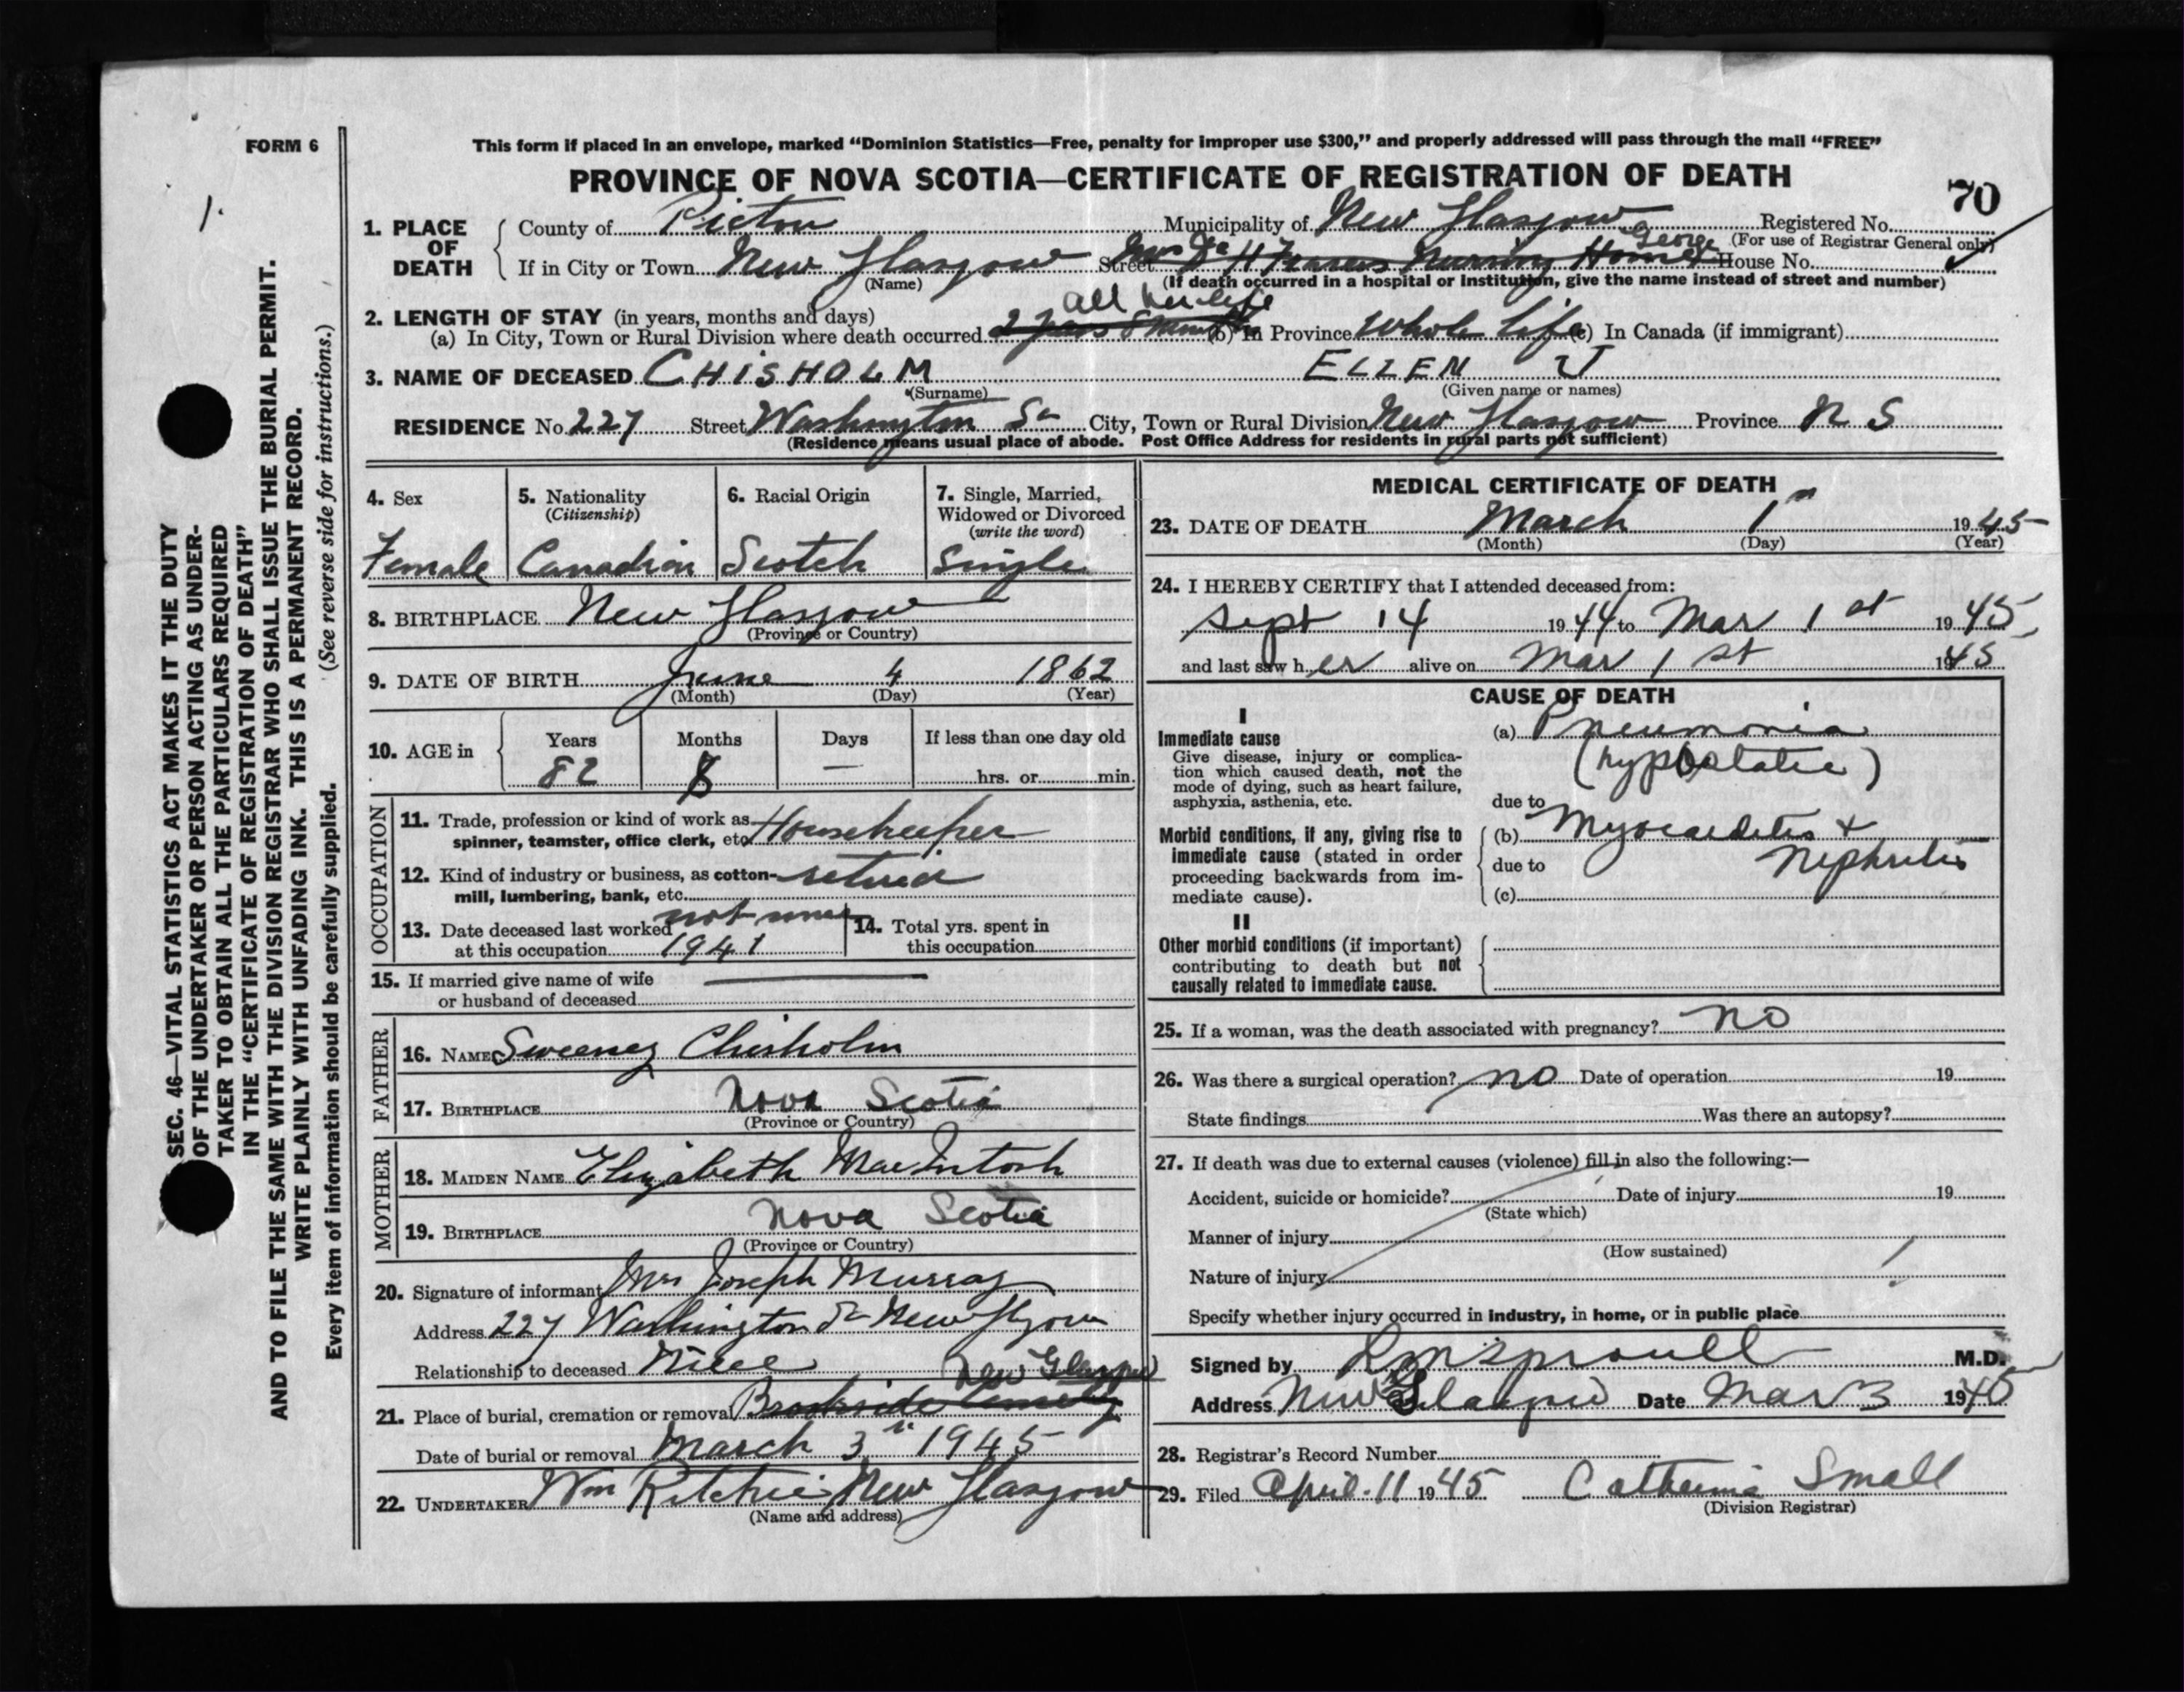 FORM 6
This form if placed in an envelope, marked “Dominion Statistics—Free, penalty for improper use $300,” and properly addressed will pass through the mail “FREE”
PROVINCE OF NOVA SCOTIA—CERTIFICATE OF REGISTRATION OF DEATH
70
1.
1. PLACE OF DEATH
County of Pictou Municipality of New Glasgow Registered No.
(For use of Registrar General only)
If in City or Town New Glasgow Street Nursing Home George House No.
(Name) (If death occurred in a hospital or Institution, give the name instead of street and number)
2. LENGTH OF STAY (in years, months and days) all her life
(a) In City, Town or Rural Division where death occurred 2 years 8 months (b) In Province Whole Life (c) In Canada (if immigrant)
3. NAME OF DECEASED CHISHOLM ELLEN J
(Surname) (Given name or names)
RESIDENCE No. 227 Street Washington St City, Town or Rural Division New Glasgow Province N S
(Residence means usual place of abode. Post Office Address for residents in rural parts not sufficient)
4. Sex
Female
5. Nationality
(Citizenship)
Canadian
6. Racial Origin
Scotch
7. Single, Married, Widowed or Divorced
(write the word)
Single
8. BIRTHPLACE New Glasgow
(Province or Country)
9. DATE OF BIRTH June 4 1862
(Month) (Day) (Year)
10. AGE in
Years Months Days If less than one day old
82 8 — hrs. or min.
OCCUPATION
11. Trade, profession or kind of work as
spinner, teamster, office clerk, etc. Housekeeper
12. Kind of industry or business, as cotton-
mill, lumbering, bank, etc. retired
13. Date deceased last worked not since
at this occupation 1941
14. Total yrs. spent in
this occupation
15. If married give name of wife
or husband of deceased
FATHER
16. NAME Sweeney Chisholm
17. BIRTHPLACE Nova Scotia
(Province or Country)
MOTHER
18. MAIDEN NAME Elizabeth MacIntosh
19. BIRTHPLACE Nova Scotia
(Province or Country)
20. Signature of informant Mrs Joseph Murray
Address 227 Washington St New Glasgow
Relationship to deceased Niece
New Glasgow
21. Place of burial, cremation or removal Brookside Cemetery
Date of burial or removal March 3" 1945
22. UNDERTAKER Wm Ritchie New Glasgow
(Name and address)
MEDICAL CERTIFICATE OF DEATH
23. DATE OF DEATH March 1" 1945
(Month) (Day) (Year)
24. I HEREBY CERTIFY that I attended deceased from:
Sept 14 1944 to Mar 1st 1945,
and last saw her alive on Mar 1st 1945
CAUSE OF DEATH
I
Immediate cause
Give disease, injury or complica-
tion which caused death, not the
mode of dying, such as heart failure,
asphyxia, asthenia, etc.
(a) Pneumonia
(hypostatic)
due to
Morbid conditions, if any, giving rise to
immediate cause (stated in order
proceeding backwards from im-
mediate cause).
(b) Myocarditis +
due to Nephritis
(c)
II
Other morbid conditions (if important)
contributing to death but not
causally related to immediate cause.
25. If a woman, was the death associated with pregnancy? no
26. Was there a surgical operation? no Date of operation 19
State findings Was there an autopsy?
27. If death was due to external causes (violence) fill in also the following:—
Accident, suicide or homicide? Date of injury 19
(State which)
Manner of injury
(How sustained)
Nature of injury
Specify whether injury occurred in industry, in home, or in public place
Signed by Sproull M.D.
Address New Glasgow Date Mar 3 1945
28. Registrar's Record Number
29. Filed April 11 1945 Catherine Small
(Division Registrar)
SEC. 46—VITAL STATISTICS ACT MAKES IT THE DUTY
OF THE UNDERTAKER OR PERSON ACTING AS UNDER-
TAKER TO OBTAIN ALL THE PARTICULARS REQUIRED
IN THE “CERTIFICATE OF REGISTRATION OF DEATH”
AND TO FILE THE SAME WITH THE DIVISION REGISTRAR WHO SHALL ISSUE THE BURIAL PERMIT.
WRITE PLAINLY WITH UNFADING INK. THIS IS A PERMANENT RECORD.
Every item of information should be carefully supplied. (See reverse side for instructions.)